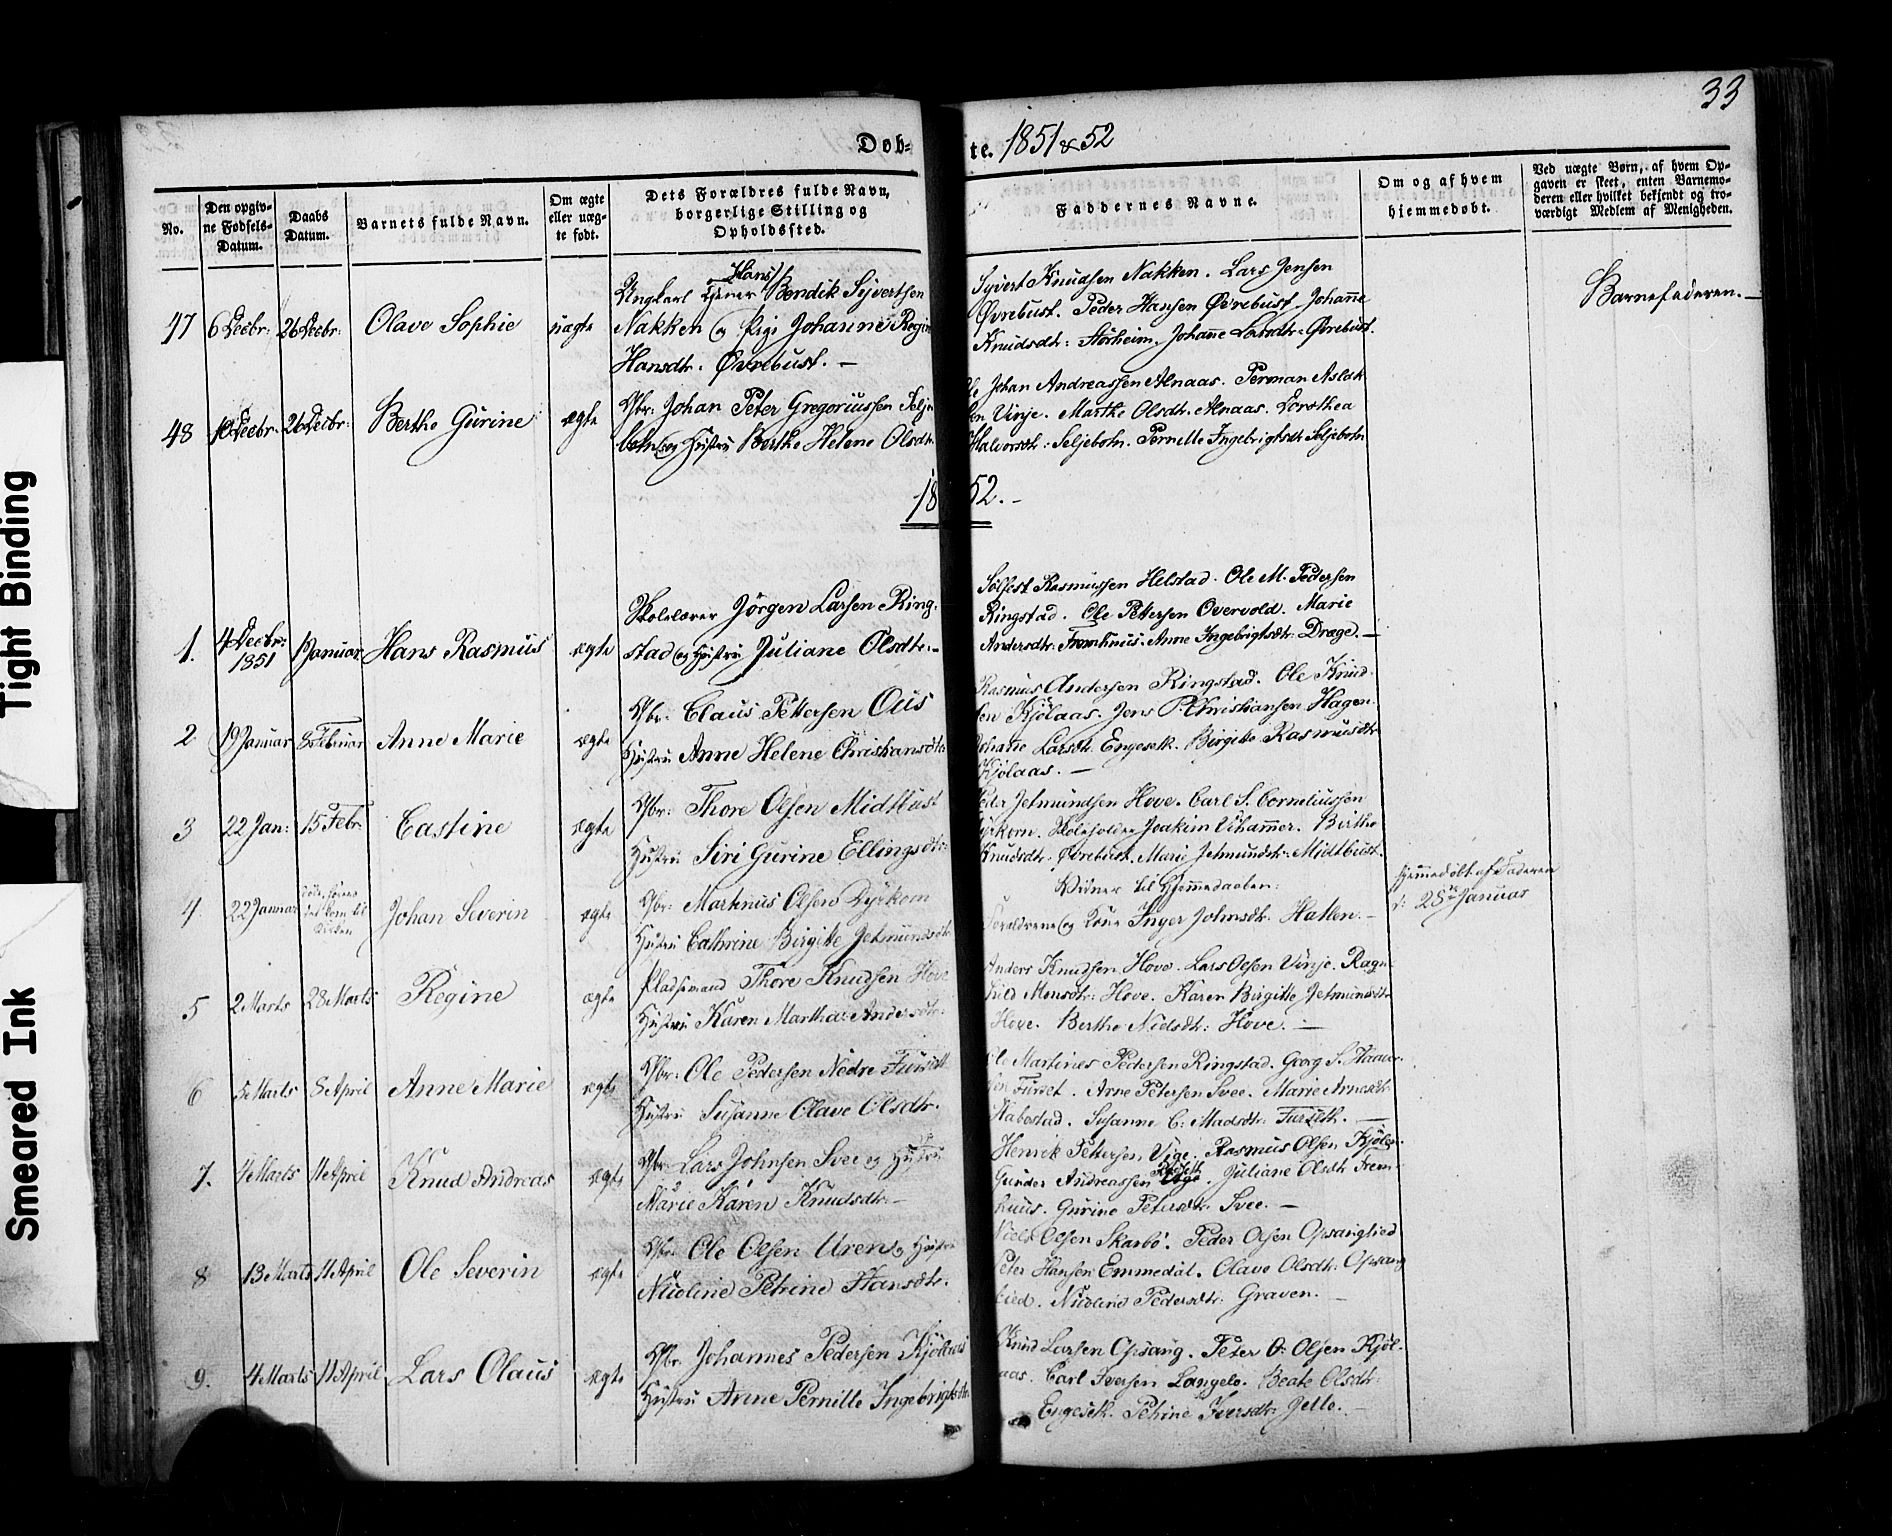 33
Döb- te. 1851 & 52
No.
Den opgiv-
ne Fødsels-
Datum.
Daabs
Datum.
Barnets fulde Navn.
Om ægte
eller uæg-
te født.
Dets Forældres fulde Navn,
borgerlige Stilling og
Opholdssted.
Faddernes Navne.
Om og af hvem
hjemmedøbt.
Ved uægte Børn, af hvem Op-
gaven er skeet, enten Barnemo-
deren eller hvilket bekjendt og tro-
værdigt Medlem af Menigheden.
47 6 Decbr: 26 Decbr: Olave Sophie uægte
Hans
Ungkarl Bendik Syvertsen
Nakken og Pige Johanne Regine
Hansdtr. Øvrebust. —
Syvert Knudsen Nakken. Lars Jensen
Øvrebust. Peder Hansen Øvrebust. Johanne
Knudsdtr: Størheim. Johanne Larsdtr: Øvrebust.
Barnefaderen. —
48 10 Decbr: 26 Decbr: Berthe Gurine ægte
Gbr: Johan Peter Gregoriussen Selje
botn og Hustru Berthe Helene Olsdtr.
Johan Andreassen Alnaas. Perman Aslak
sen Vinje. Marthe Olsdtr. Alnaas. Dorothea
Halvorsdtr: Seljebotn. Pernille Ingebrigtsdtr Seljebotn
1852. -
1. 4 Decbr: 1851 1 Januar Hans Rasmus ægte
Skolelærer Jörgen Larsen Ring-
stad og Hustru Juliane Olsdtr. -
Sølfest Rasmussen Helstad. Ole M. Pedersen
Ringstad. Ole Pettersen Overvold. Marie
Andersdtr. Fremhuus. Anne Ingebrigtsdtr. Drage. —
2 19 Januar 8 Februar Anne Marie ægte
Gbr: Claus Pettersen Aus
Hustru Anne Helene Christiansdtr
Rasmus Andersen Ringstad. Ole Knud-
sen Kjölaas. Jens P. Christiansen Hagen.
Johanne Larsdtr. Engeseth. Birgitte Rasmusdtr
Kjölaas. —
3 22 Jan: 15 Febr. Castine ægte
Gbr: Thore Olsen Midtbust
Hustru Siri Gurine Ellingsdtr:
Peder Jetmundsen Hove. Carl S. Corneliussen
Dyrkorn. Joakim Uhammer. Birthe
Knudsdtr. Øvrebust. Marie Jetmundsdtr. Midtbust.
4 22 Januar Johan Severin ægte
Gbr: Martinus Olsen Dyrkorn
Hustru Cathrine Birgitte Jetmundsdtr
Vidner til Hjemmedaaben:
Forældrene og Kone Inger Johnsdtr. Hatlen. —
Hjemmedöbt af Faderen
d: 28de Januar
5 2 Marts 28 Marts Regine ægte
Pladsmand Thore Knudsen Hove
Hustru Karen Martha Andersdtr:
Anders Knudsen Hove. Lars Olsen Vinje. Ragn-
hild Monsdtr: Hove. Karen Birgitte Jetmundsdtr
Hove. Berthe Nielsdtr: Hove. —
6 5 Marts 8 April Anne Marie ægte
Gbr: Ole Pedersen Nedre Furseth
Hustru Susanne Olave Olsdtr.
Ole Martines Pedersen Ringstad. Georg S.
Furset. Arne Petersen Svee. Marie Arnesdtr
Habostad. Susanne C: Madsdtr. Furseth. —
7. 4 Marts 11 April Knud Andreas ægte
Gbr: Lars Johnsen Svee og Hustru
Marie Karen Knudsdtr. —
Henrik Pettersen Vige. Rasmus Olsen Kjölas.
Gunder Andreassen. Juliane Olsdtr Frem-
huus. Gurine Petersdtr. Svee. —
8 13 Marts 11 April Ole Severin ægte
Gbr: Ole Olsen Uren og Hustru
Nicoline Petrine Hansdtr.
Niels Olsen Skarbö. Peder Olsen Opsanglied
Peter Hansen Emmedal. Olave Olsdtr. Opsang
lied. Nicoline Pedersdtr. Graven. —
9. 4 Marts 11 April Lars Olaus ægte
Gbr: Johannes Pedersen Kjöllaas
Hustru Anne Pernille Ingebrigtsdtr
Knud Larsen Opsang. Peter O: Olsen Kjöl-
aas. Carl Iversen Langelo. Beate Olsdtr:
Engeseth. Petrine Iversdtr. Jelle. —
Tight Binding
Smeared Ink